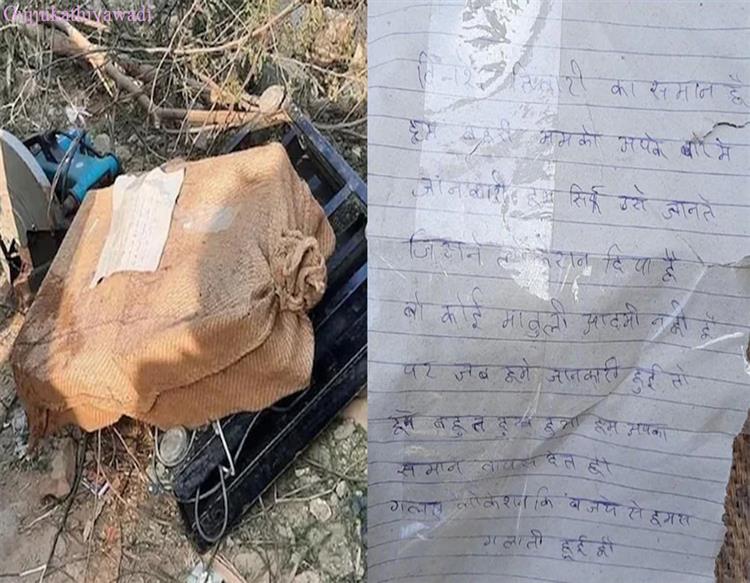 Gujjukathiyawadi
का समान है
हम बहारी हमको आपके बारे मे
जानकारी हम सिर्फ उसे जानते
जिसने दिया है
वो कोई मावुली आदमी नही है
पर जब हमे जानकारी हुई तो
हमे बहुत दुख हुआ हम आपका
समान वापस देत है।
गलत लोकेशन कि बजये से हमसे
गलाती हुई है।